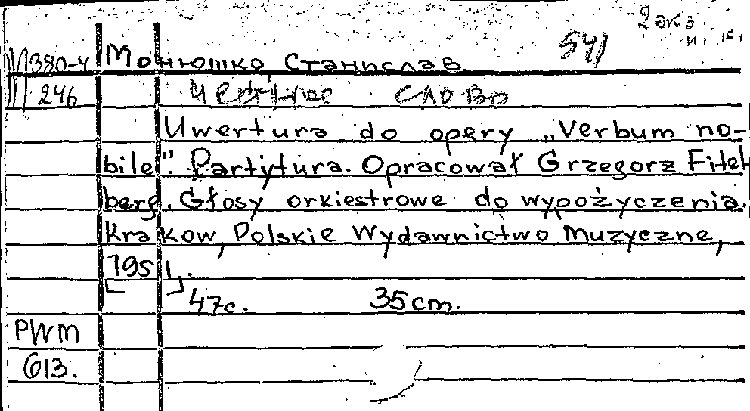 2 экз
541
М380-4 Монюшко, Станислав
246 Честное слово
Uwertura do opery „Verbum no-
bile". Partytura. Opracował Grzegorz Fitel-
berg. Głosy orkiestrowe do wypożyczenia.
Krakow, Polskie Wydawnictwo Muzyczne,
[1951].
47c. 35cm.
PWM
613.